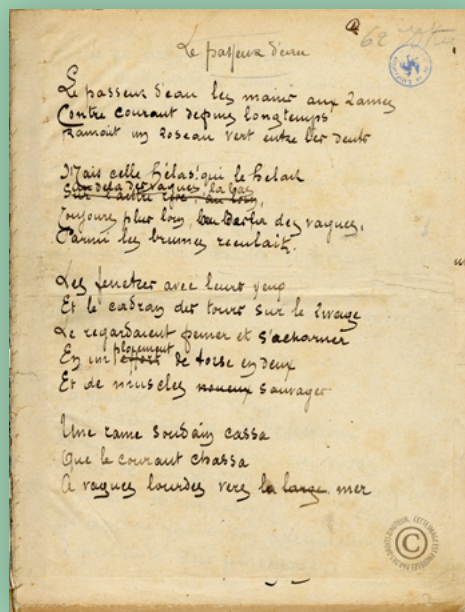 Le passeur d'eau
62
Le passeur d'eau les mains aux rames
Contre courant depuis longtemps
Ramait un roseau vert entre les dents
Mais celle hélas! qui le hélait
Au delà des vagues, là bas
Sur l'autre rive, au loin,
Toujours plus loin, au delà des vagues,
Parmi les brumes reculait.
Les fenêtres avec leurs yeux
Et le cadran des tours sur le rivage
Le regardaient peiner et s'acharner
ploiement
En un effort de torse en deux
Et de muscles noueux sauvages
Une rame soudain cassa
Que le courant chassa
A vagues lourdes vers la large mer
©